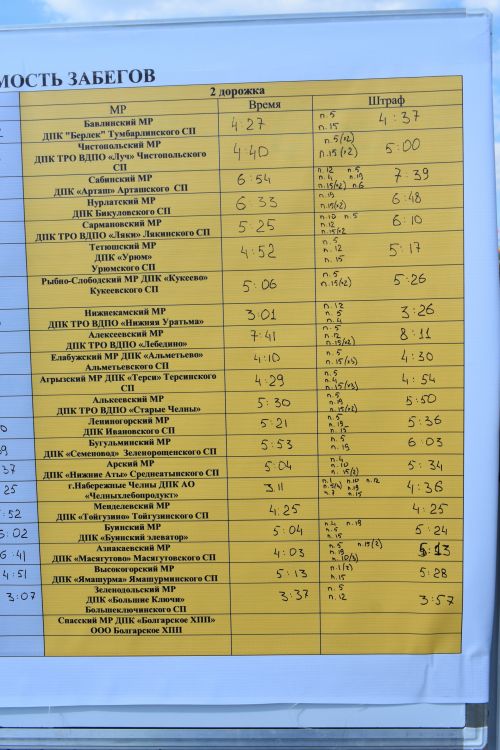 МОСТЬ ЗАБЕГОВ
2 дорожка
МР Время Штраф
Бавлинский МР
ДПК "Берлек" Тумбарлинского СП
4:27
п. 5
п. 15
4:37
Чистопольский МР
ДПК ТРО ВДПО «Луч» Чистопольского
СП
4:40
п. 5(×2)
п. 15(×2)
5:00
Сабинский МР
ДПК «Арташ» Арташского СП
6:54
п. 12 п. 5
п. 4 п. 19
п. 15(×2) п. 6
7:39
Нурлатский МР
ДПК Бикуловского СП
6 33
п. 19
п. 15(×2)
6:48
Сармановский МР
ДПК ТРО ВДПО «Ляки» Лякинского СП
5:25
п. 10 п. 5
п. 12
п. 15×2
6:10
Тетюшский МР
ДПК «Урюм»
Урюмского СП
4:52
п. 5
п. 12
п. 15
5:17
Рыбно-Слободский МР ДПК «Кукеево»
Кукеевского СП
5:06
п. 5
п. 15(×2)
5:26
Нижнекамский МР
ДПК ТРО ВДПО «Нижняя Уратьма»
3:01
п. 12
п. 5
п. 4
3:26
Алексеевский МР
ДПК ТРО ВДПО «Лебедино»
7:41
п. 5
п. 12
п. 15(×2)
8:11
Елабужский МР ДПК «Альметьево»
Альметьевского СП
4:10
п. 5
п. 15(×3)
4:30
Агрызский МР ДПК «Терси» Терсинского
СП
4:29
п. 5
п. 4
п. 15(×3)
4:54
Алькеевский МР
ДПК ТРО ВДПО «Старые Челны»
5:30
п. 5
п. 19
п. 15(×2)
5:50
Лениногорский МР
ДПК Ивановского СП
5:21
п. 5
п. 19
п. 15
5:36
Бугульминский МР
ДПК «Семеновод» Зеленорощенского СП
5:53
п. 5
п. 19
6:03
Арский МР
ДПК «Нижние Аты» Среднеатынского СП
5:04
п. 4
п. 10
п. 15(2)
5:34
г.Набережные Челны ДПК АО
«Челныхлебопродукт»
3.11
п. 1 п. 10 п. 12
п. 5(4) п. 19
п. 7 п. 15
4:36
Менделевский МР
ДПК «Тойгузино» Тойгузинского СП
4:25
4:25
Буинский МР
ДПК «Буинский элеватор»
5:04
п. 4 п. 19
п. 5
п. 15
5:24
Азнакаевский МР
ДПК «Масягутово» Масягутовского СП
4:03
п. 5 п. 15(2)
п. 19
п. 10(3)
5:13
Высокогорский МР
ДПК «Ямашурма» Ямашурминского СП
5:13
п. 1(2)
п. 15
5:28
Зеленодольский МР
ДПК «Большие Ключи»
Большеключинского СП
3:37
п. 5
п. 12
3:57
Спасский МР ДПК «Болгарское ХПП»
ООО Болгарское ХПП
37
25
:52
6:02
6:41
4:51
3:07